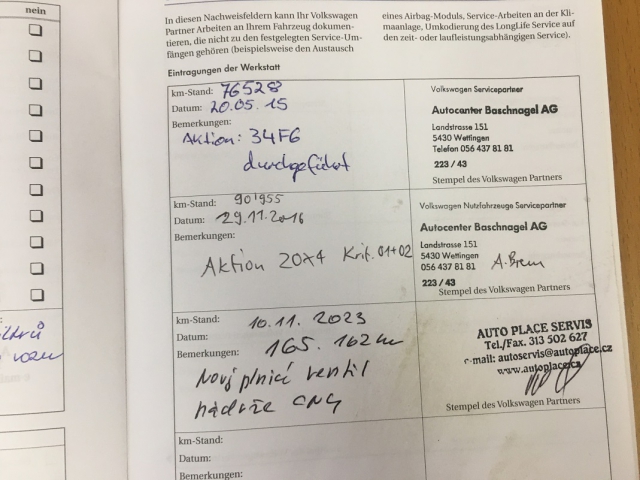 nein
In diesen Nachweisfeldern kann Ihr Volkswagen
Partner Arbeiten an Ihrem Fahrzeug dokumen-
tieren, die nicht zu den festgelegten Service-Um-
fängen gehören (beispielsweise den Austausch
eines Airbag-Moduls, Service-Arbeiten an der Kli-
maanlage, Umkodierung des LongLife Service auf
den zeit- oder laufleistungsabhängigen Service).
Eintragungen der Werkstatt
km-Stand: 76528
Datum: 20.05.15
Bemerkungen:
Aktion: 34F6
durchgeführt
Volkswagen Servicepartner
Autocenter Baschnagel AG
Landstrasse 151
5430 Wettingen
Telefon 056 437 81 81
223 / 43
Stempel des Volkswagen Partners
km-Stand: 90'955
Datum: 29.11.2016
Bemerkungen:
Aktion 20X4 Krit. 01+02
Volkswagen Nutzfahrzeuge Servicepartner
Autocenter Baschnagel AG
Landstrasse 151
5430 Wettingen
056 437 81 81
223 / 43
Stempel des Volkswagen Partners
km-Stand: 10.11. 2023
Datum:
Bemerkungen: 165.162 km
Nový plnící ventil
nádrže CNG
AUTO PLACE SERVIS
Tel./Fax. 313 502 627
e-mail: autoservis@autoplace.cz
www.autoplace.cz
Stempel des Volkswagen Partners
km-Stand:
Datum:
Bemerkungen: